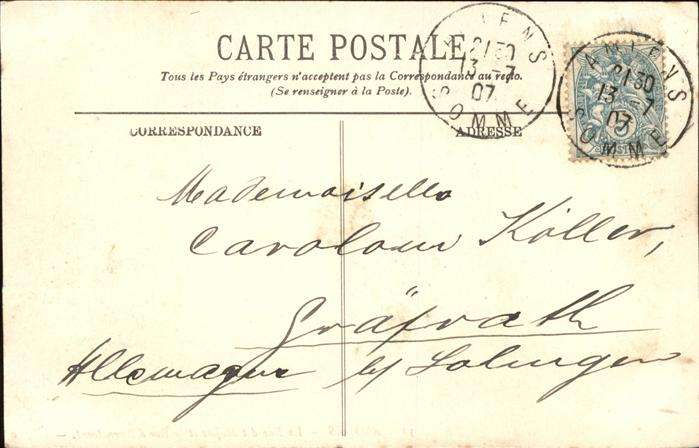 CARTE POSTALE
Tous les Pays étrangers n'acceptent pas la Correspondance au recto.
(Se renseigner à la Poste).
AMIENS
21 30
13 - 7
07
SOMME
AMIENS
21 30
13 - 7
07
SOMME
5
CORRESPONDANCE
ADRESSE
Mademoiselle
Köller,
Gräfrath
Allemagne b/ Solingen